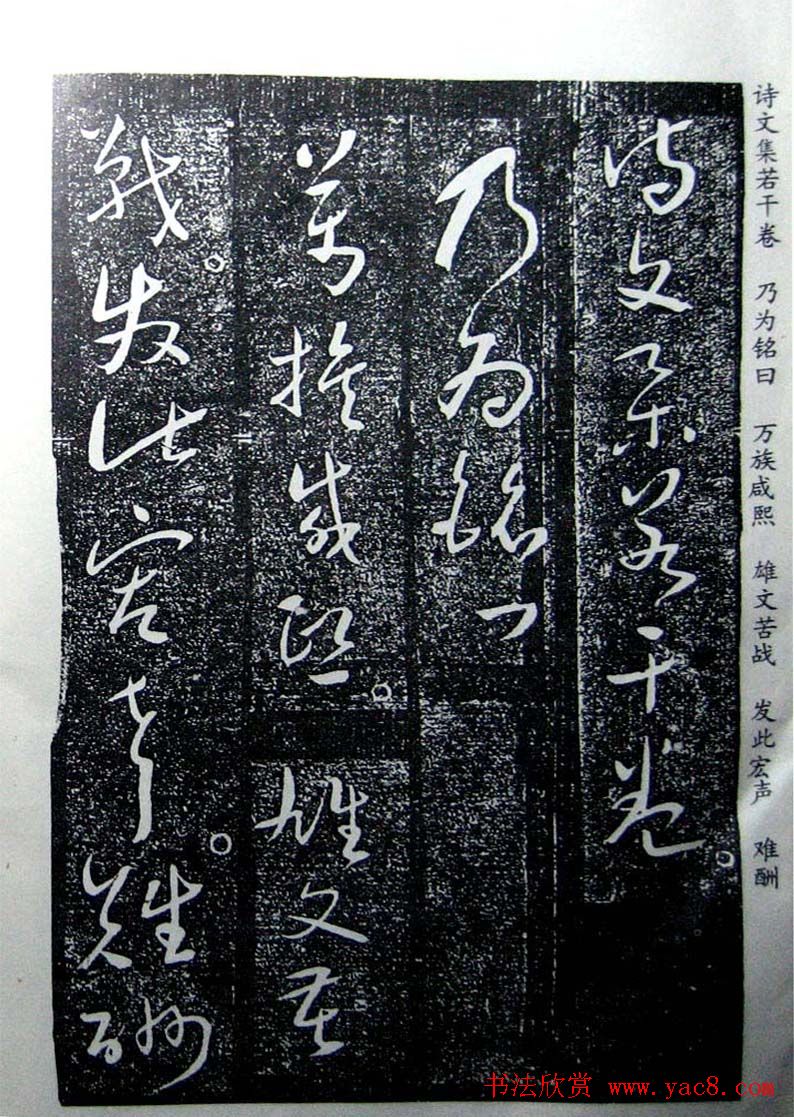 诗文集若干卷　乃为铭曰　万族咸熙　雄文苦战　发此宏声　难酬
詩文集若干卷。
乃為銘曰
萬族咸熙。雄文苦
戰。發此宏聲。難酬
书法欣赏 www.yac8.com